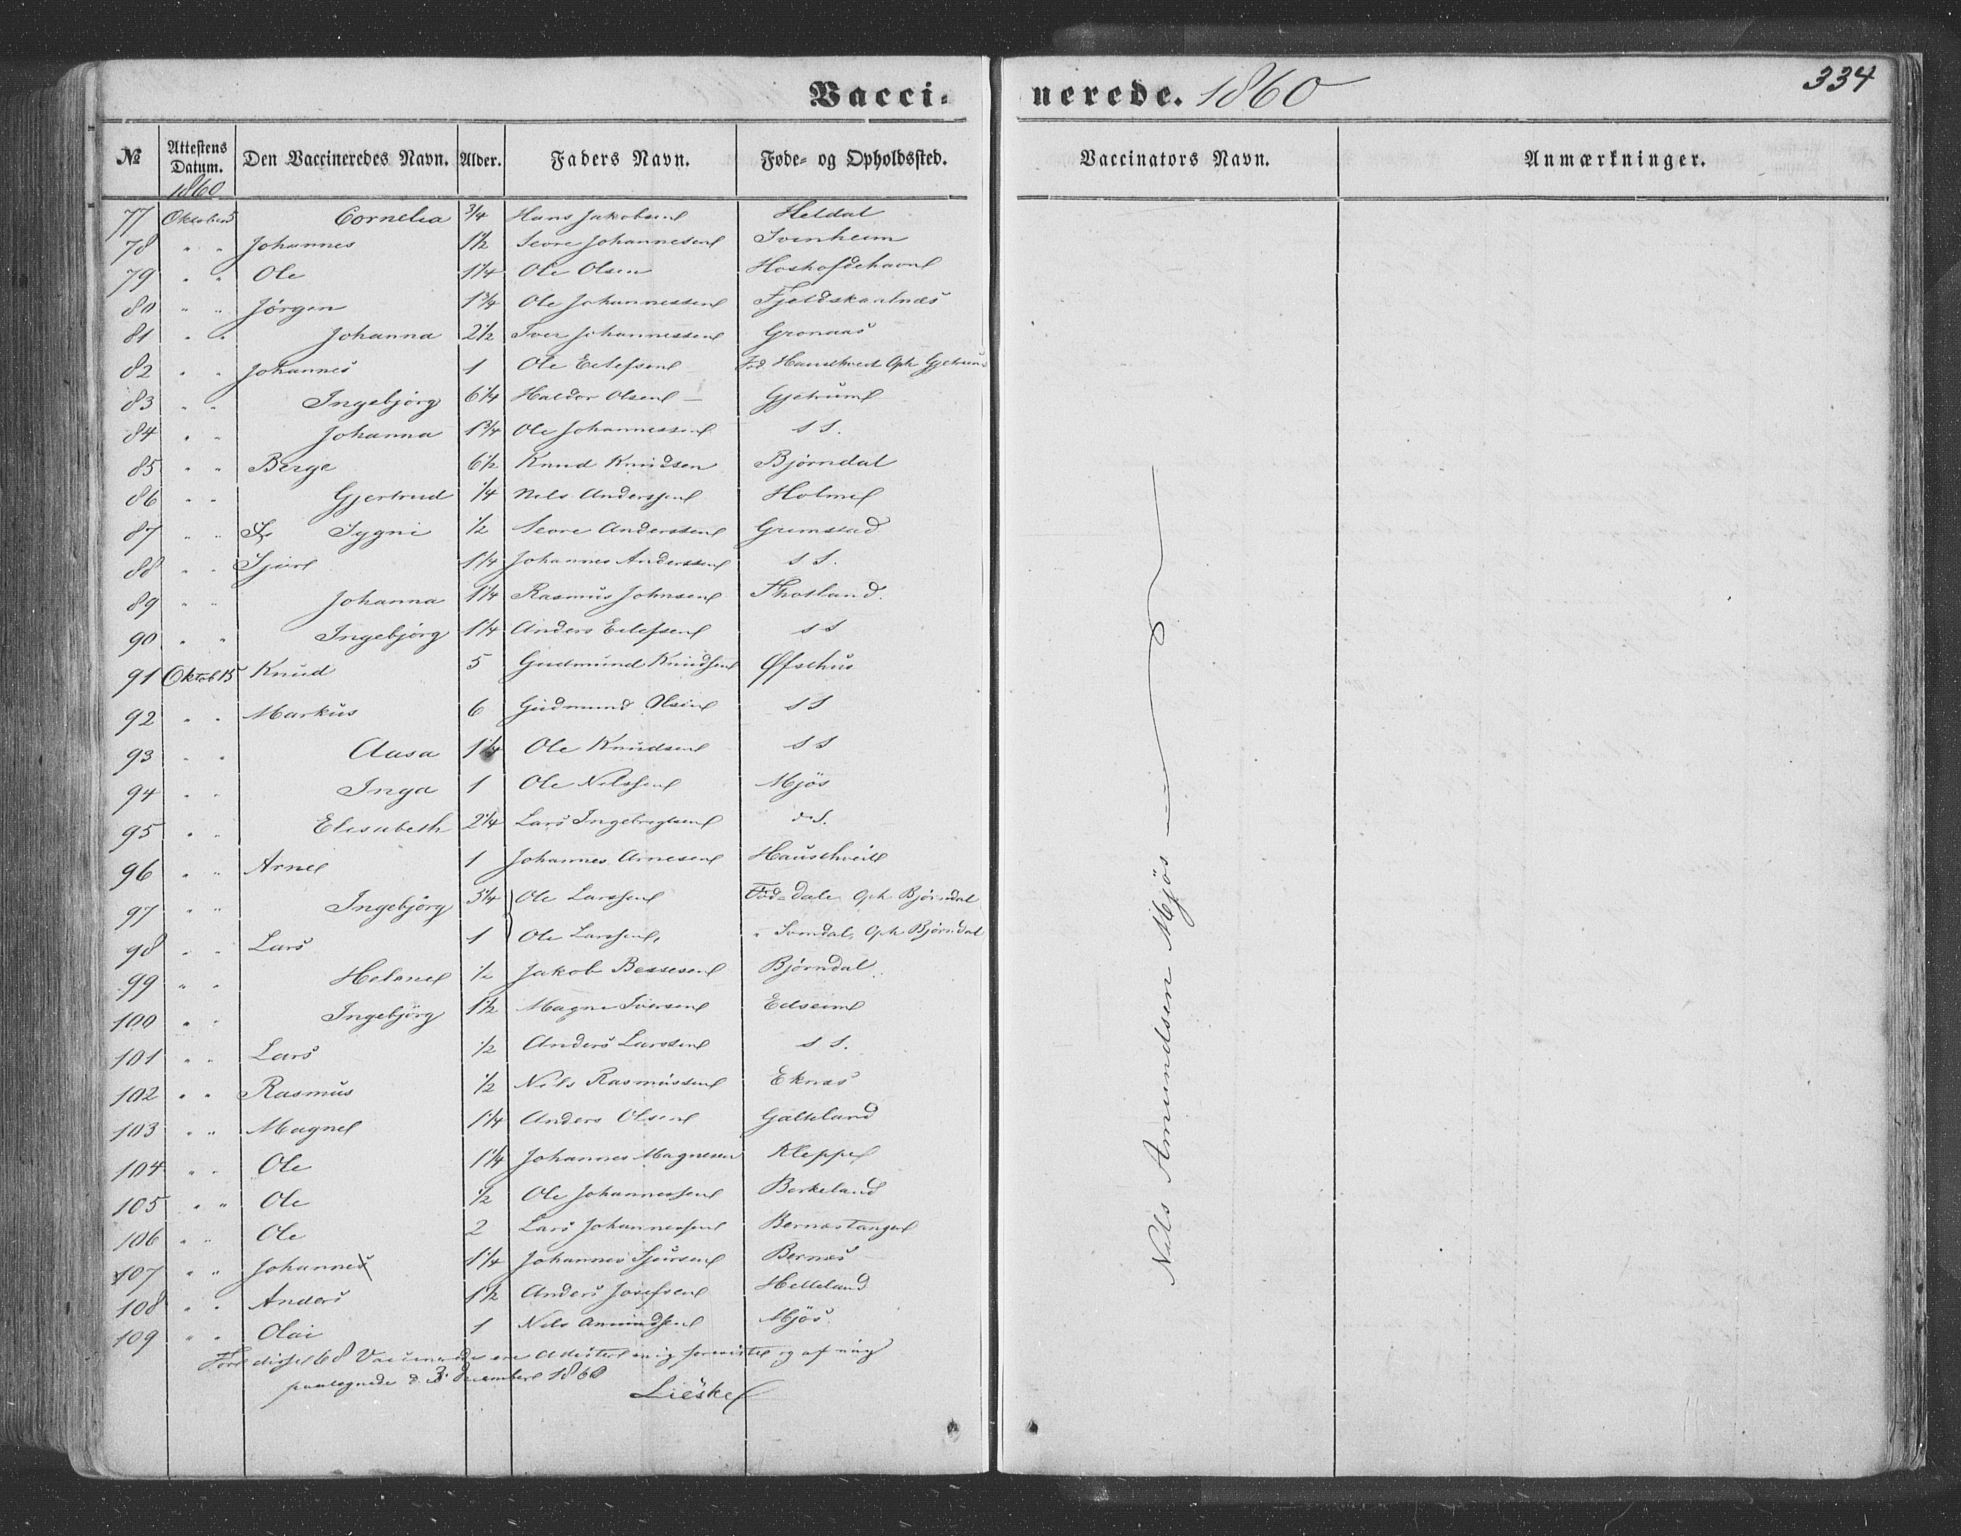 Vacci- nerede. 1860 334
№ Attestens Datum. Den Vaccineredes Navn. Alder. Faders Navn. Føde- og Opholdssted. Vaccinators Navn. Anmærkninger.
1860
77 Oktober 5 Cornelia 3/4 Hans Jakobsen Heldal
78 " " Johannes 1 1/2 Johannesen
79 " " Ole 1 1/4 Ole Olsen
80 " " Jørgen 1 3/4 Ole Johannessen Fjeldskaalnæs
81 " " Johanna 2 1/2 Iver Johannessen Grønaas
82 " " Johannes 1 Ole Oph. Gjetrum
83 " " Ingebjörg 6 1/4 Haldor Olsen — Gjetrum
84 " " Johanna 1 3/4 Ole Johannessen s s.
85 " " Berge 6 1/2 Knud Knudsen Bjørndal
86 " " Gjertrud 1/4 Nels Anderssen Holme
87 " " Sygni 1/2 Anderssen Grimstad
88 " " 1 1/4 Johannes Anderssen s s.
89 " " Johanna 1 1/4 Rasmus Johnsen
90 " " Ingebjörg 1 1/4 Anders s s
91 Oktob 15 Knud 5 Gudmund Knudsen
92 " " Markus 6 Gudmund Olsen s s
93 " " Aasa 1 1/4 Ole Knudsen s s
94 " " Inga 1 Ole Nelssen Mjös
95 " " Elisabeth 2 1/4 Lars Ingebregtsen s s.
96 " " Arne 1 Johannes Arnesen
97 " " Ingebjörg 5 1/4 Ole Larssen Föd= Dale, Oph. Bjørndal
98 " " Lars 1 Ole Larssen, " Oph. Bjørndal
99 " " Helene 1/2 Jakob Bessesen Bjørndal
100 " " Ingebjörg 1 1/2 Magne Iversen
101 " " Lars 1/2 Anders Larssen s s.
102 " " Rasmus 1/2 Nils Rasmussen Eknæs
103 " " Magne 1 1/4 Anders Olsen Galteland
104 " " Ole 1 1/4 Johannes Magnesen Kleppe
105 " " Ole 1/2 Ole Johannessen Berkeland
106 " " Ole 2 Lars Johannessen Bernæstangen
107 " " Johannes 1 1/4 Johannes Sjursen Bernæs
108 " " Anders 1 1/2 Anders Josefsen Helleland
109 " " Olai 1 Nils Amundsen Mjös.
68 Vaccinerede ere Attester mig foreviste og af mig
paategnede d. 3 December 1860
Lieske
Nils Amundsen Mjös —